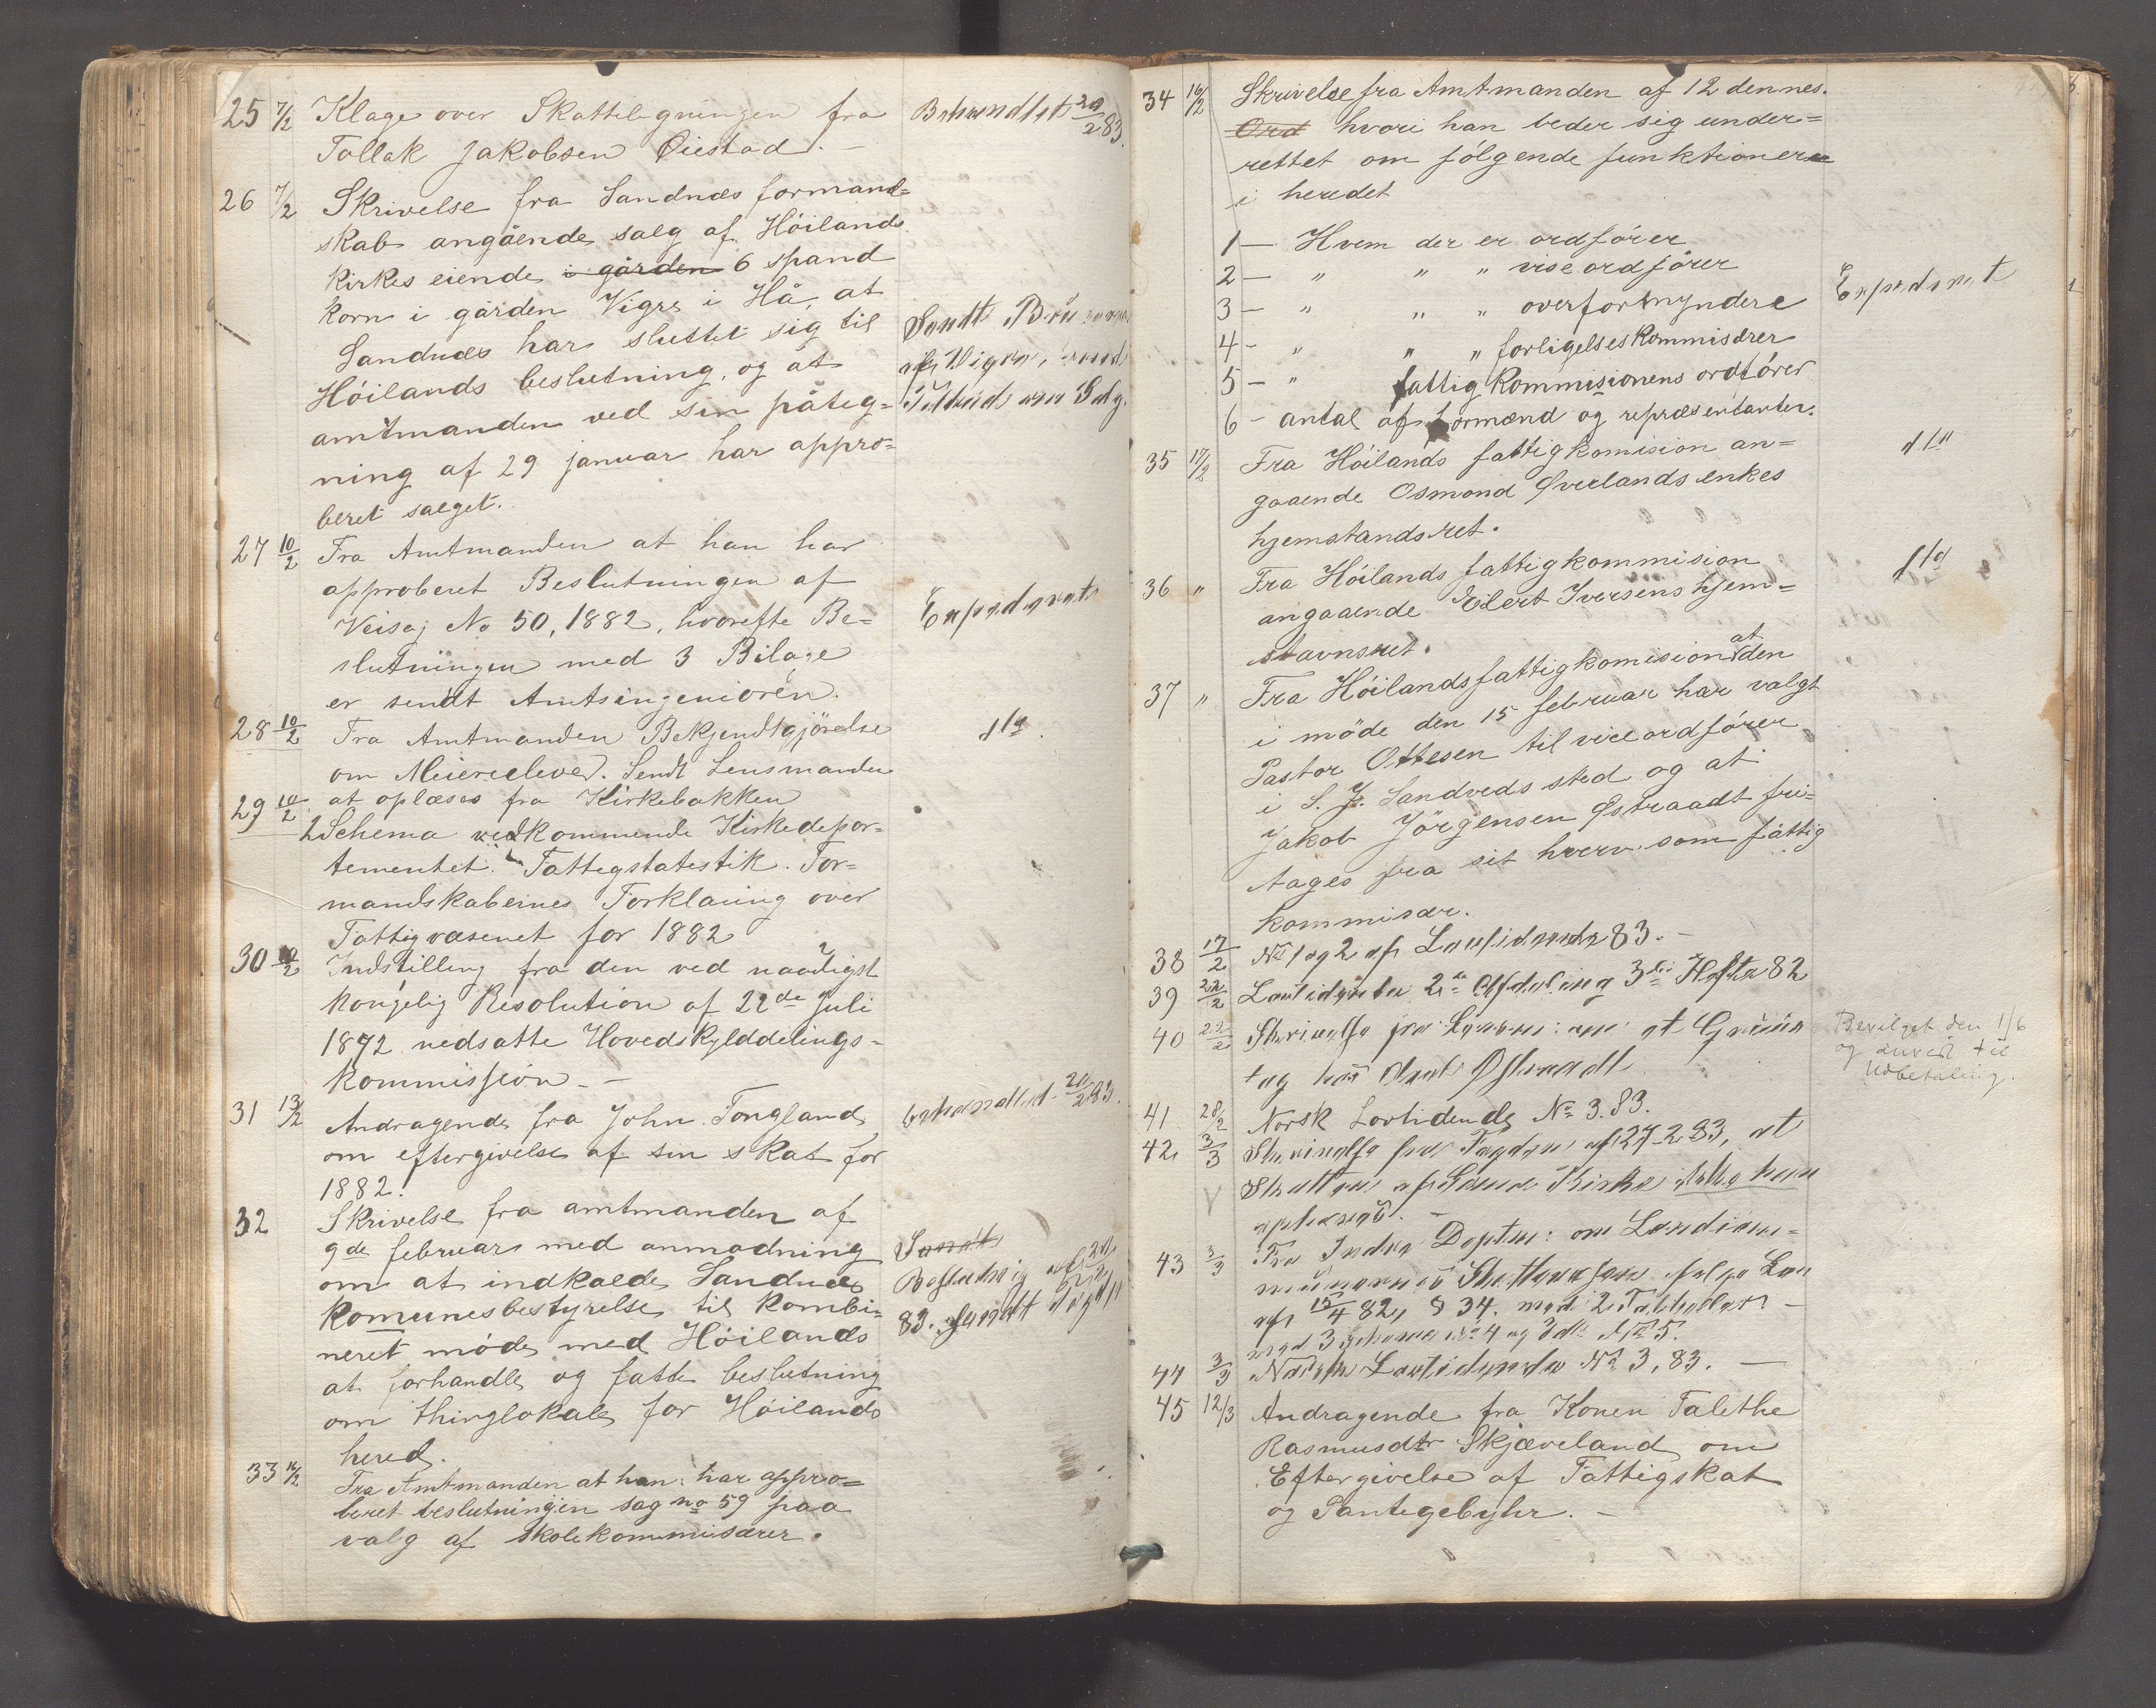 25 7/2 Klage over Skattilegningen fra Behandlet 20/2 83.
Tollak Jakobsen Öiestad. —
26 7/2 Skrivelse fra Sandnæs formand=
skab angående salg af Höilands
Kirkes eiende i gården 6 spand
korn i gården Vigre i Hå, at
Sandnæs har sluttet sig til
Höilands beslutning, og at
amtmanden ved sin påteg=
ning af 29 januar har appro=
beret salget.
Sendt
af Vigre, med
27 10/2 Fra Amtmanden at han har
approberet Beslutningen af
Veisag No 50, 1882, hvorefte Be=
slutningen med 3 Bilage
er sendt Amtsingeniören.
Expederet
28 10/2 Fra Amtmanden Bekjendtgjörelse dto.
om Meierielever. Sendt Lensmanden
at oplæses fra Kirkebakken
29 10/2 2 Schema vedkommende Kirkedepar-
tementet. Fattegstatestik. For=
mandskabernes Forklaring over
Fattigvæsenet for 1882
30 10/2 Indstilling fra den ved naadigst
kongelig Resolution af 22de Juli
1872 nedsatte Hovedskylddelings-
kommission. —
31 13/2 Andragende fra John Tongland behandlet 20/2 83.
om eftergivelse af sin skat for
1882.
32 Skrivelse fra amtmanden af
9de februar med anmodning
om at indkalde Sandnæs
komunesbestyrelse til kombi=
neret möde med Höilands
at forhandle og fatte beslutning
om thinglokale for Höilands
hered.
Sendt
Beslutnig af 20/2
83. sendt
33 16/2 Fra Amtmanden at han har appro=
beret beslutningen sag no 59 paa
valg af skolekommisærer.
34 16/2 Skrivelse fra Amtmanden af 12 dennes.
Ord hvori han beder sig under=
rettet om fölgende funktionerer
i heredet
1 — Hvem der er ordförer
2 — " " " viseordförer
3 — " " " overformyndere Expederet
4 - " " " forligelseskommisærer
5 — " fattigkommisionens ordförer
6 - antal af formænd og repræsentanter.
35 17/2 Fra Höilands fattigkomision an= dto
gaaende Osmond Överlands enkes
hjemstandsret.
36 " Fra Höilands fattigkommision dto
angaaende Eilert Iversens hjem=
stavnsret.
37 " Fra Höilands fattigkomision at den
i möde den 15 februar har valgt
Pastor Ottesen til viceordförer
i S. J. Sandveds sted og at
Jakob Jörgensen Östraadt fri=
tages fra sit hverv som fattig
kommisær.
38 17/2 No 1 og 2 af Lovtidende 83. —
39 22/2 Lovtidende 2den Afdeling 3die Hefte 82
40 22/2 Skrivelse fra
tag hos Östraadt
Bevilget den 1/6
og anvist til
Udbetaling.
41 28/2 Norsk Lovtidende No 3. 83.
42 3/3 Skrivelse fra Fogden af 27-2 83, at
Skatten af Sande Kirke

43 3/3 Fra Indre Deptm: om
Skattevæsen ifølge Lov
af 15/4 82, § 34. med 2 Tabeller
med 3 Schema No 4 og 3 dto No 5.
44 3/3 Norsk Lovtidende No 3, 83. —
45 12/3 Andragende fra Konen Talethe
Rasmusdtr Skjæveland om
Eftergivelse af Fattigskat
og Pantegebyhr. —